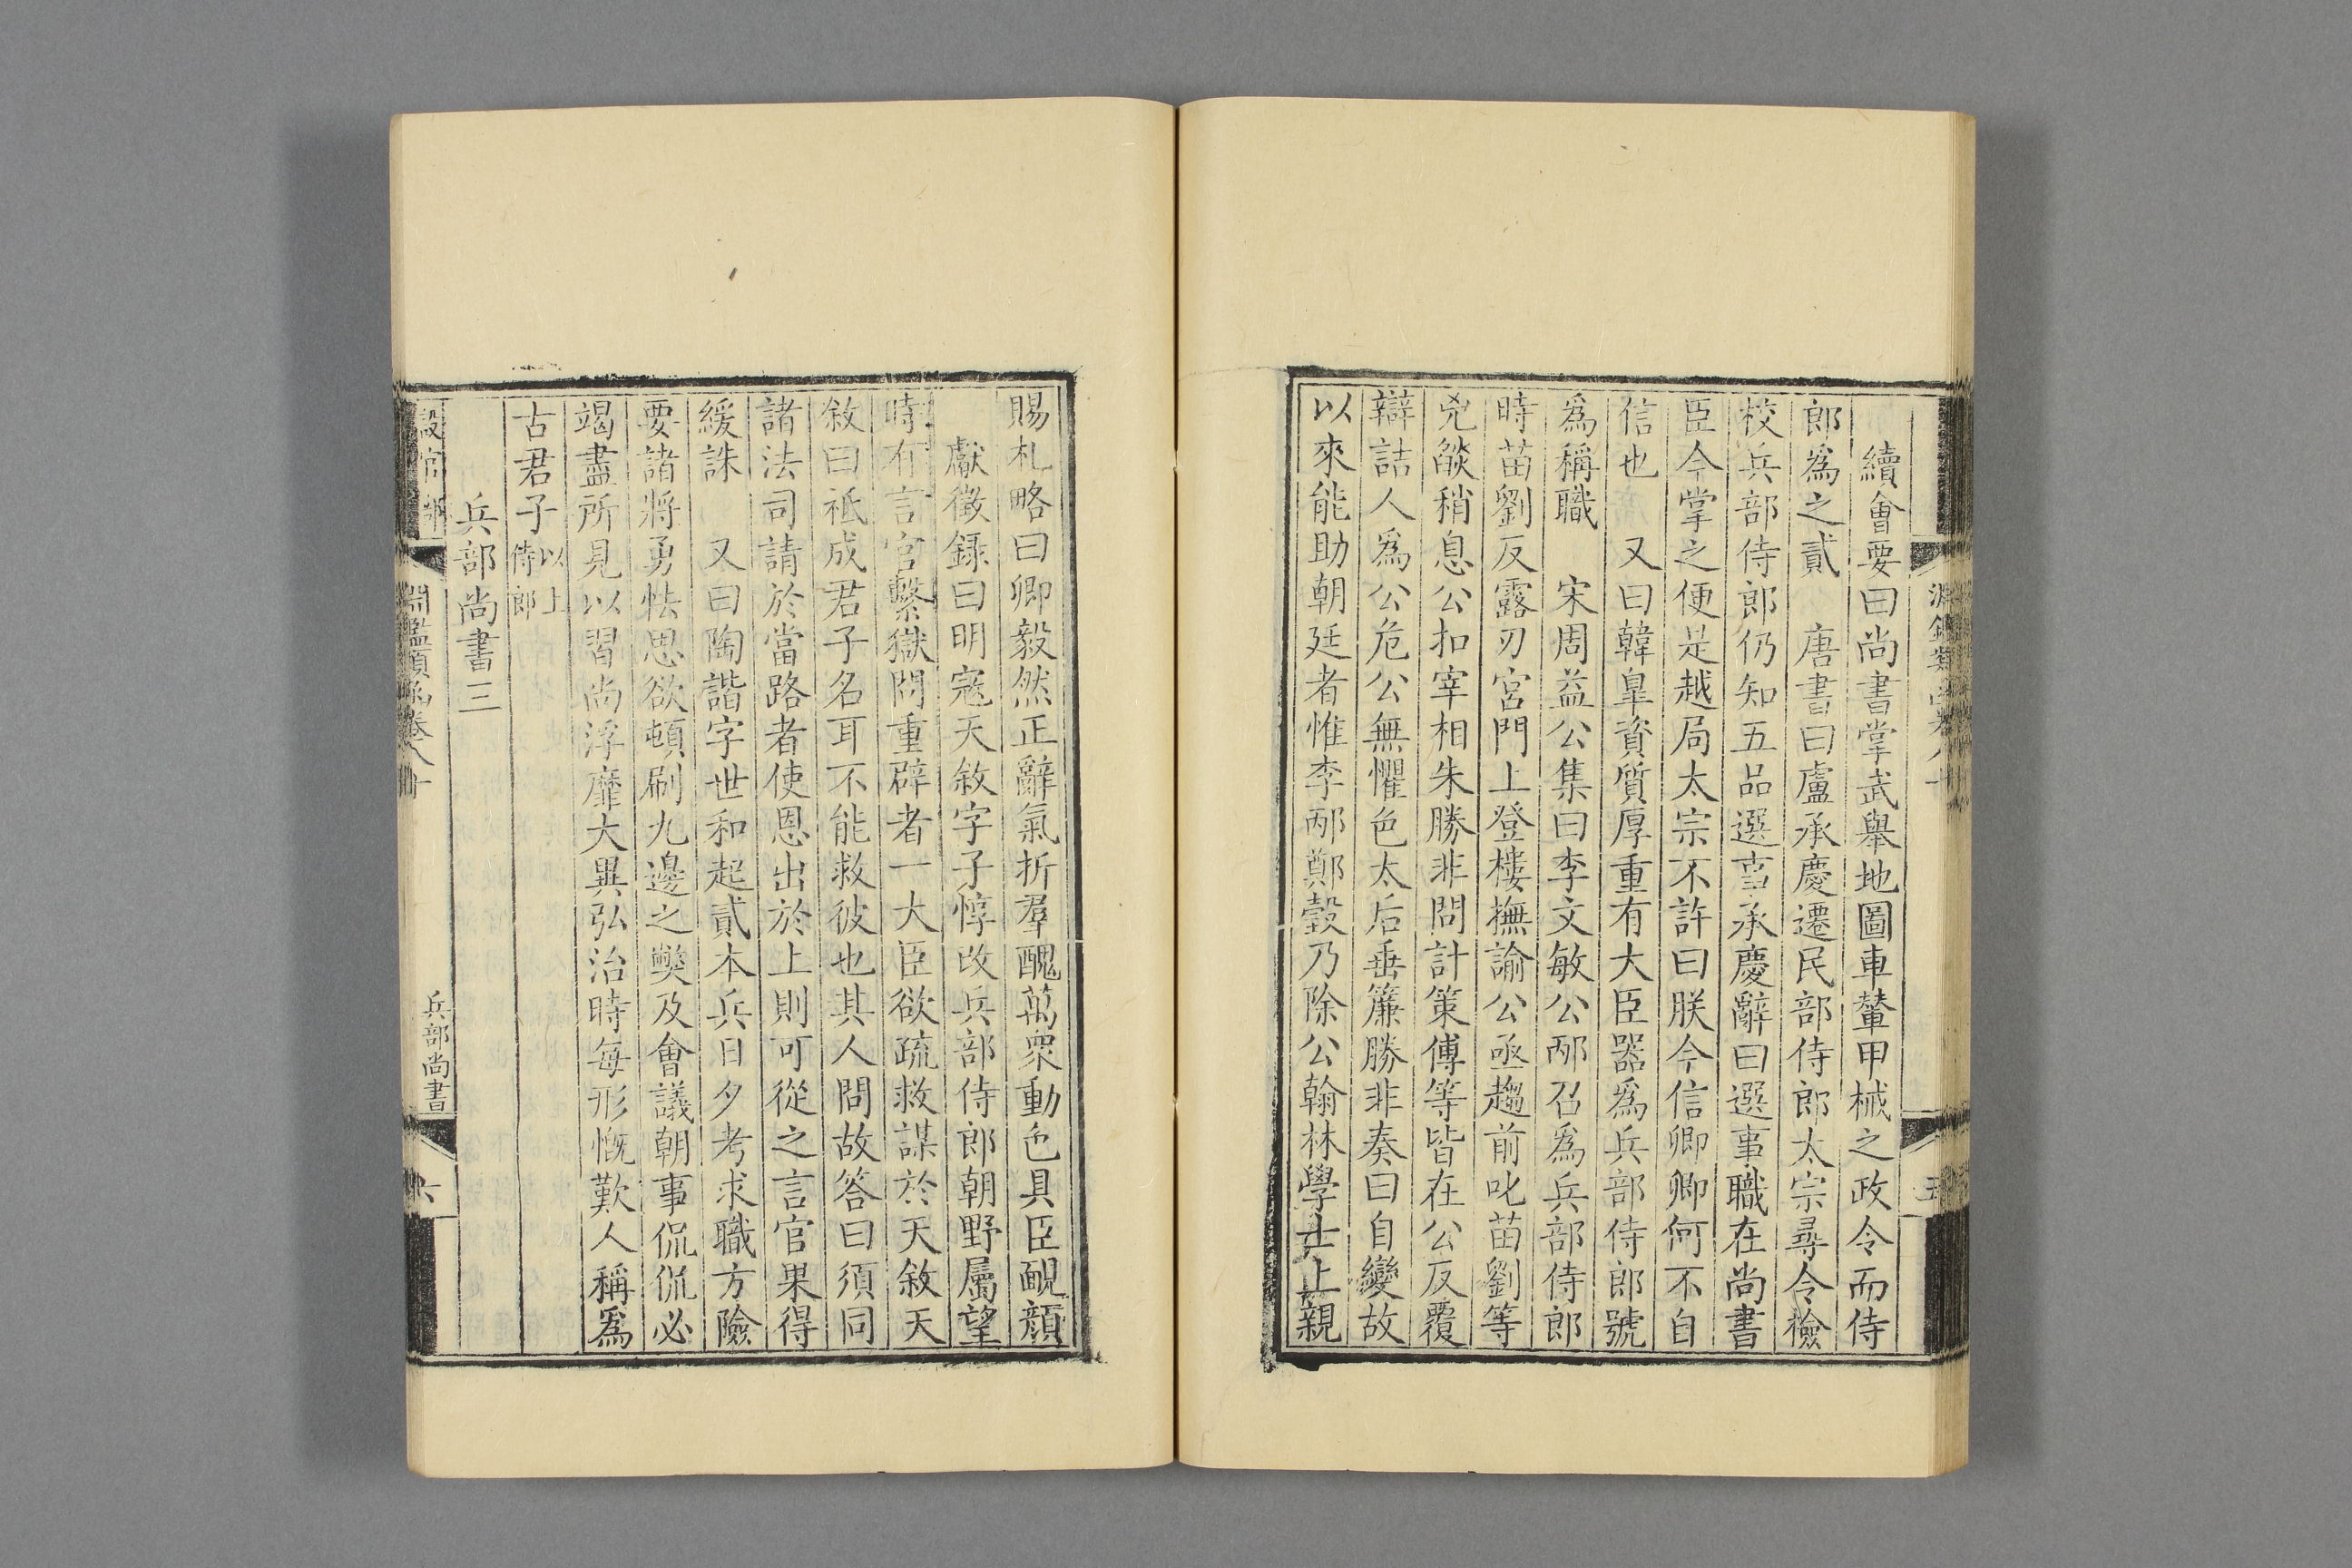 續會要曰尚書掌武舉地圖車輦甲械之政令而侍
郎爲之貳　唐書曰盧承慶遷民部侍郎太宗尋令檢
校兵部侍郎仍知五品選事承慶辭曰選事職在尚書
臣今掌之便是越局太宗不許曰朕今信卿卿何不自
信也　又曰韓臯資質厚重有大臣器爲兵部侍郎號
爲稱職　宋周益公集曰李文敏公邴召爲兵部侍郎
時苗劉反露刃宮門上登樓撫諭公亟趨前叱苗劉等
兇燄稍息公扣宰相朱勝非問計策傅等皆在公反覆
辯詰人爲公危公無懼色太后垂簾勝非奏曰自變故
以來能助朝廷者惟李邴鄭瑴乃除公翰林學士上親
賜札略曰卿毅然正辭氣折羣醜萬衆動色具臣靦顏
獻徵錄曰明寇天敘字子惇改兵部侍郎朝野屬望
時有言官繫獄問重辟者一大臣欲疏救謀於天敘天
敘曰祗成君子名耳不能救彼也其人問故答曰須同
諸法司請於當路者使恩出於上則可從之言官果得
緩誅　又曰陶諧字世和起貳本兵日夕考求職方險
要諸將勇怯思欲頓刷九邊之獘及會議朝事侃侃必
竭盡所見以習尚浮靡大異弘治時每形慨歎人稱爲
古君子以上侍郎
兵部尚書三
設官部
淵鑑類函卷八十
兵部尚書
六